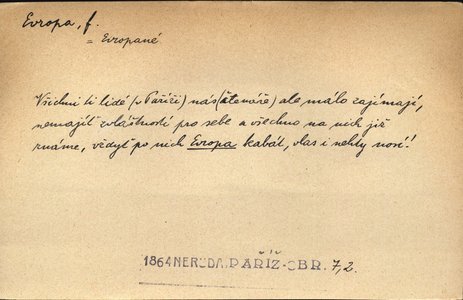 Evropa, f.
= Evropané
Všichni ti lidé (v Paříži) nás (čtenáře) ale málo zajímají,
nemajíť zvláštností pro sebe a všechno na nich již
známe, vždyť po nich Evropa kabát, vlas i nehty nosí!
1864 NERUDA, PAŘÍŽ-OBR. 7,2.